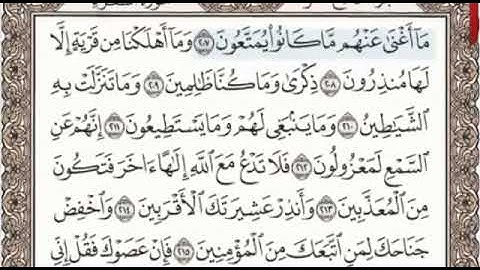 مَآ أَغْنَىٰ عَنْهُم مَّا كَانُوا۟ يُمَتَّعُونَ ٢٠٧ وَمَآ أَهْلَكْنَا مِن قَرْيَةٍ إِلَّا
لَهَا مُنذِرُونَ ٢٠٨ ذِكْرَىٰ وَمَا كُنَّا ظَٰلِمِينَ ٢٠٩ وَمَا تَنَزَّلَتْ بِهِ
ٱلشَّيَٰطِينُ ٢١٠ وَمَا يَنۢبَغِى لَهُمْ وَمَا يَسْتَطِيعُونَ ٢١١ إِنَّهُمْ عَنِ
ٱلسَّمْعِ لَمَعْزُولُونَ ٢١٢ فَلَا تَدْعُ مَعَ ٱللَّهِ إِلَٰهًا ءَاخَرَ فَتَكُونَ
مِنَ ٱلْمُعَذَّبِينَ ٢١٣ وَأَنذِرْ عَشِيرَتَكَ ٱلْأَقْرَبِينَ ٢١٤ وَٱخْفِضْ
جَنَاحَكَ لِمَنِ ٱتَّبَعَكَ مِنَ ٱلْمُؤْمِنِينَ ٢١٥ فَإِنْ عَصَوْكَ فَقُلْ إِنِّى